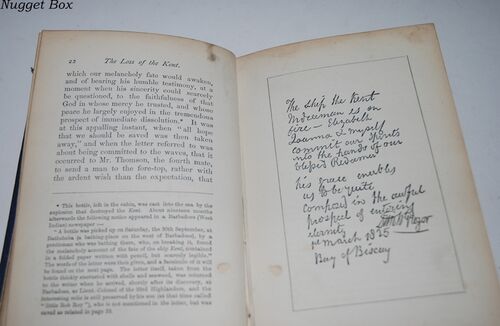 Nugget Box
22 The Loss of the Kent.
which our melancholy fate would awaken,
and of bearing his humble testimony, at a
moment when his sincerity could scarcely
be questioned, to the faithfulness of that
God in whose mercy he trusted, and whose
peace he largely enjoyed in the tremendous
prospect of immediate dissolution.* It was
at this appalling instant, when "all hope
that we should be saved was now taken
away," and when the letter referred to was
about being committed to the waves, that it
occurred to Mr. Thomson, the fourth mate,
to send a man to the fore-top, rather with
the ardent wish than the expectation, that
* This bottle, left in the cabin, was cast into the sea by the
explosion that destroyed the Kent. About nineteen months
afterwards the following notice appeared in a Barbadoes (West
Indian) newspaper:—
"A bottle was picked up on Saturday, the 30th September, at
Bathsheba (a bathing-place on the west of Barbadoes), by a
gentleman who was bathing there, who, on breaking it, found
the melancholy account of the fate of the ship Kent, contained
in a folded paper written with pencil, but scarcely legible."
The words of the letter were then given, and a facsimile of it will
be found on the next page. The letter itself, taken from the
bottle thickly encrusted with shells and seaweed, was returned
to the writer when he arrived, shortly after its discovery, at
Barbadoes, as Lieut. Colonel of the 93rd Highlanders, and the
interesting relic is still preserved by his son (at that time called
"little Rob Roy"), who is not mentioned in the letter, but was
saved as related in page
The ship the Kent
Indiaman is on
fire — Elizabeth
Joanna & myself
commit our spirits
into the hands of our
blessed Redeemer
his grace enables
us to be quite
composed in the awful
prospect of entering
eternity
1st March 1825
Bay of Biscay